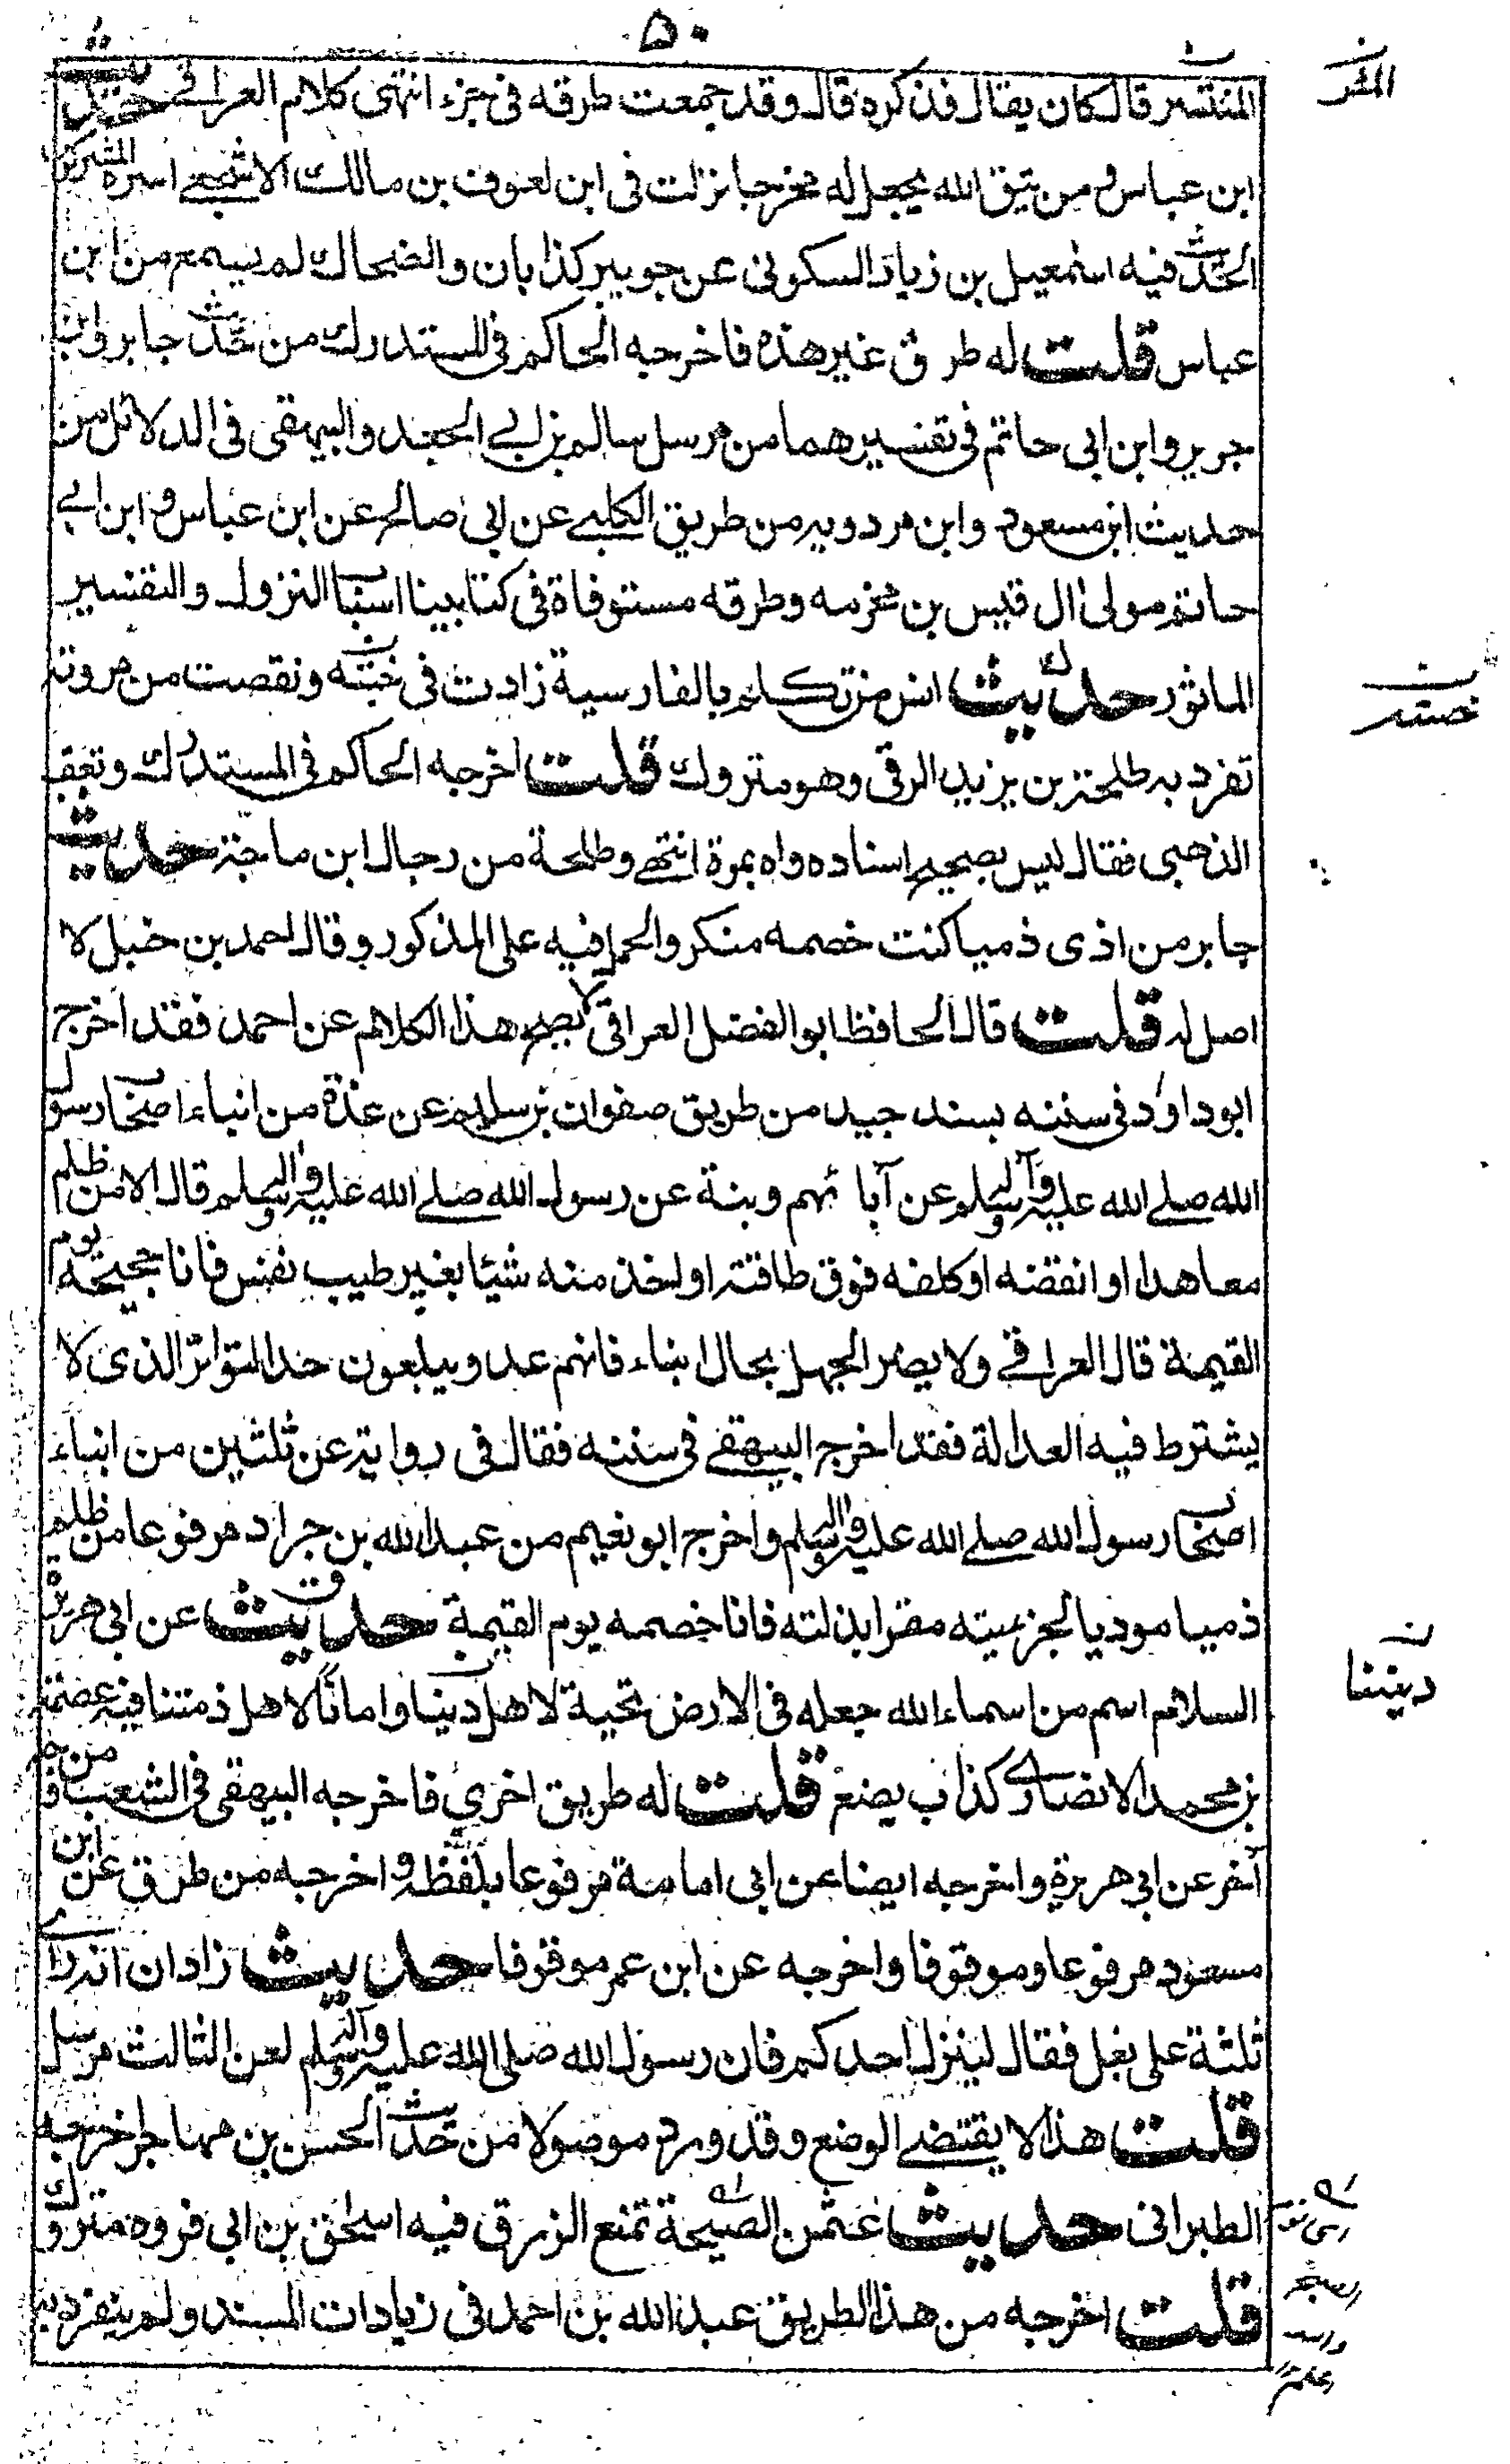 ۵۰
المنتشر قال كان يقال فذكره قال وقد جمعت طرقه فى جزء انتهى كلام العراقى حديث
المنتشر
ابن عباس فى من يتق الله يجعل له مخرجا نزلت فى ابن لعوف بن مالك الاشجعے اسره المشركون
الحديث فيه اسمعيل بن زياد السكونى عن جويبر كذابان والضحاك لم يسمع من ابن
عباس قلت له طرق غير هذه فاخرجه الحاكم فى المستدرك من حديث جابر وابن
جرير وابن ابى حاتم فى تفسيرهما من مرسل سالم بن ابے الجعد والبيهقى فى الدلائل من
حديث ابن مسعود وابن مردويه من طريق الكلبے عن ابى صالح عن ابن عباس و ابن ابے
حاتم مولى ال قيس بن مخرمه وطرقه مستوفاة فى كتابينا اسباب النزول والتفسير
الماثور حديث انس من تكلم بالفارسية زادت فى خبثه ونقصت من مروته
تفرد به طلحة بن يزيد الرقى وهو متروك قلت اخرجه الحاكم فى المستدرك وتعقبه
الذهبى فقال ليس بصحيح اسناده واه بمرة انتهے وطلحة من رجال ابن ماجة حديث
جابر من اذى ذميا كنت خصمه منكر والحمل فيه على المذكور وقال احمد بن حنبل لا
اصل له قلت قال الحافظ ابو الفضل العراقى لا يصح هذا الكلام عن احمد فقد اخرج
ابو داود فى سننه بسند جيد من طريق صفوان بن سليم عن عدة من ابناء اصحاب رسول
الله صلے الله عليه وآله وسلم عن آبائهم دنية عن رسول الله صلے الله عليه واله وسلم قال الا من ظلم
معاهدا او انتقضه او كلفه فوق طاقته او اخذ منه شيئا بغير طيب نفس فانا حجيجه يوم
القيمة قال العراقے ولا يضر الجهل بحال ابناء فانهم عدد يبلغون حد المتواتر الذى لا
يشترط فيه العدالة فقد اخرجه البيهقے فى سننه فقال فى روايته عن ثلثين من ابناء
اصحاب رسول الله صلے الله عليه واله وسلم واخرج ابو نعيم من عبد الله بن جراد مرفوعا من ظلم
ذميا موديا لجزيته مقرا بذلته فانا خصمه يوم القيمة حديث عن ابى هريرة
السلام اسم من اسماء الله جعله فى الارض تحية لاهل ديننا وامانا لاهل ذمتنا فيه عصمة
ديننا
بن محمد الانصارى كذاب يضع قلت له طريق اخرى فاخرجه البيهقى فى الشعب من
آخر عن ابى هريرة واخرجه ايضا عن ابى امامة مرفوعا بلفظه واخرجه من طرق عن ابن
مسعود مرفوعا وموقوفا واخرجه عن ابن عمر موقوفا حديث زاذان انه راى
ثلثة على بغل فقال لينزل احدكم فان رسول الله صلى الله عليه وآله وسلم لعن الثالث مرسل
قلت هذا لا يقتضے الوضع وقد ورد موصولا من حديث الحسن بن مهاجر اخرجه
الطبرانى حديث عثمن الصبحة تمنع الرزق فيه اسحق بن ابى فروه متروك
قلت اخرجه من هذا الطريق عبد الله بن احمد فى زيادات المسند ولم ينفرد به